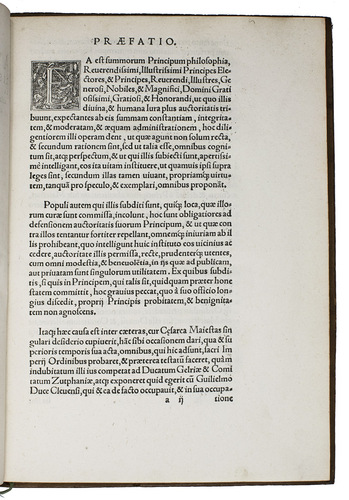 PRÆFATIO.
EA est summorum Principum philosophia,
Reuerendissimi, Illustrissimi Principes Ele-
ctores, & Principes, Reuerendi, Illustres, Ge
nerosi, Nobiles, & Magnifici, Domini Grati
osissimi, Gratiosi, & Honorandi, ut quo illis
diuina, & humana iura plus auctoritatis tri
buunt, expectantes ab eis summam constantiam, integrita-
tem, & moderatam, & æquam administrationem, hoc dili-
gentiorem illi operam dent, ut quæ agunt non solum recta,
& secundum rationem sint, sed ut talia esse, omnibus cogni-
tum sit, atq; perspectum, & ut qui illis subiecti sunt, apertissi-
mè intelligant, eos ita uitam instituere, ut quamuis ipsi supra
leges sint, secundum illas tamen uiuant, propriamq; uirtu-
tem, tanquã pro speculo, & exemplari, omnibus proponãt.
Populi autem qui illis subditi sunt, quicq; loca, quæ illo-
rum curæ sunt commissa, incolunt, hoc sunt obligatiores ad
defensionem auctoritatis suorum Principum, & ut quæ con
tra illos tentantur fortiter repellant, omnemq; iniuriam ab il
lis prohibeant, quo intelligunt huic instituto eos uicinius ac
cedere, auctoritate illis permissa, rectè, prudenterq; utentes,
cum omni modestia, & beneuolẽtia, in ijs quæ ad publicam,
aut priuatam sunt singulorum utilitatem. Ex quibus subdi-
tis, si quis in Principem, uel talis sit, quidquam præter hone
statem committit, hoc grauius peccat, quo à suo officio lon-
gius discedit, proprij Principis probitatem, & benignita-
tem non agnoscens.
Itaq; hæc causa est inter cæteras, cur Cęsarea Maiestas sin
gulari desiderio cupiuerit, hãc sibi occasionem dari, qua & su
perioris temporis sua acta, omnibus, qui hic adsunt, sacri Im
perij Ordinibus probaret, & præterea testatũ faceret, quàm
indubitatum illi ius competat ad Ducatum Gelriæ & Comi
tatum Zutphaniæ, atq; exponeret quid egerit cũ Guilielmo
Duce Cleuensi, qui & ea de facto occupauit, & in sua occupa-
a ij tione